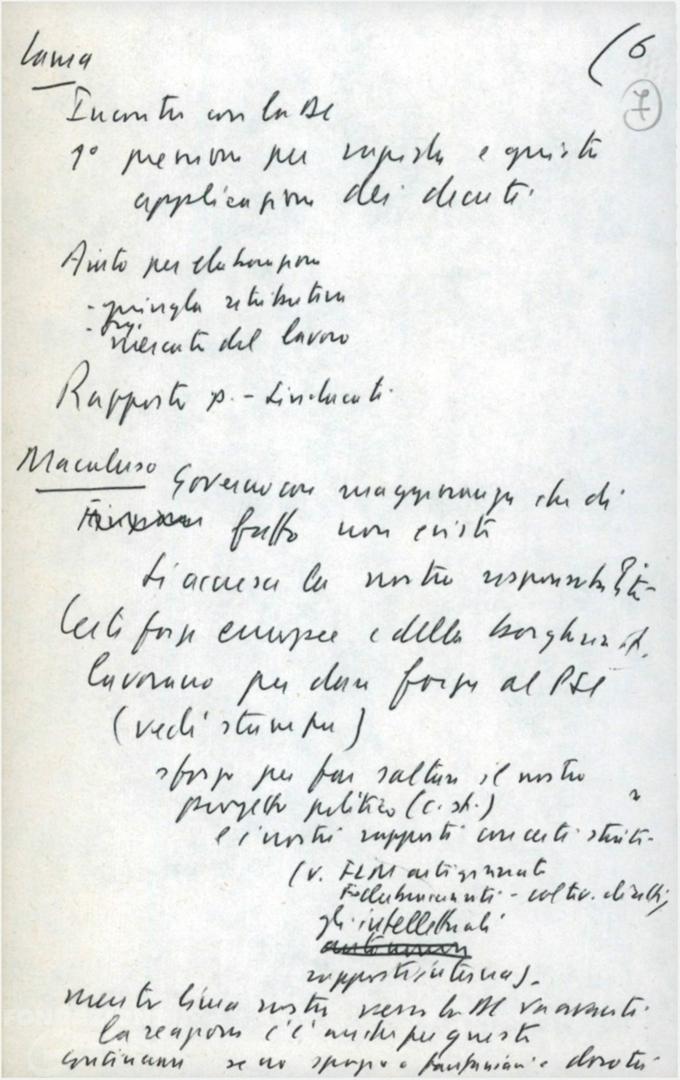 Lama (6
7
Incontro con la DC
1° pressione per rapida e giusta
applicazione dei decreti
Aiuto per elaborazione
- giungla retributiva
- mercato del lavoro
Rapporto p. - sindacati
Macaluso Governo con maggioranza che di
fatto non esiste
Si accresce la nostra responsabilità
Certi forze europee e della borghesia it.
lavorano per dare forza al PSI
(vedi stampa)
sforzo per far saltare il nostro
progetto politico (c. st.)
e i nostri rapporti con certi strati
(v. FLM artigianato
Federbraccianti - coltiv. diretti,
gli intellettuali
rapporti interni).
mentre linea nostra verso la DC va avanti
la reazione c'è anche per questo
continuare se no spazio a fanfaniani e dorotei